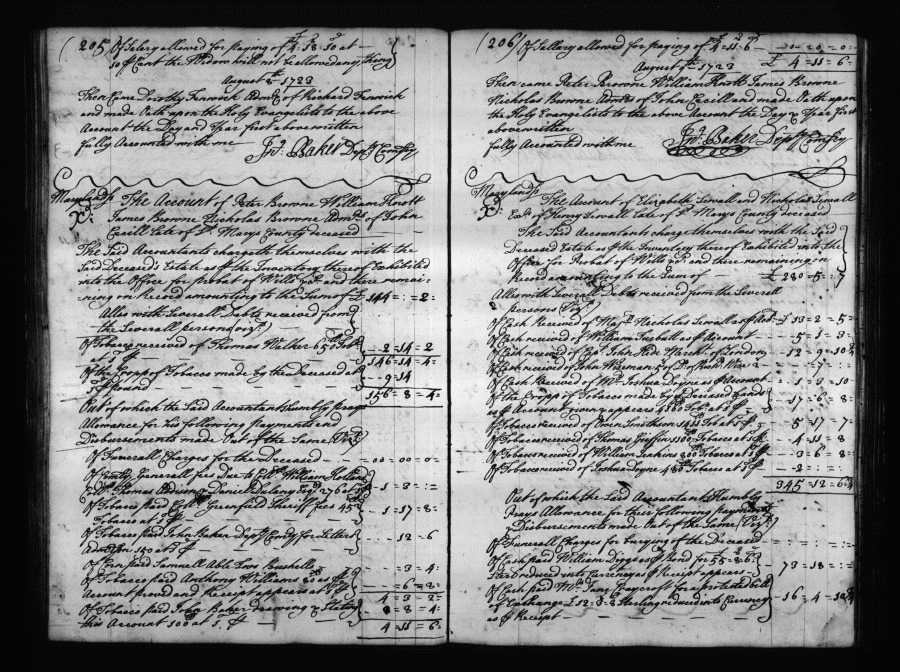 (205) Of Salery allowed for paying of £4:18:10 at
10 ₱ Cent the Widdow will not be allowed any thing
August 8th 1723
Then Came Dorothy Fenwick Admx of Richard Fenwick
and made Oath upon the Holy Evangelists to the above
Account the Day and Year first above written
fully Accounted with me Jno. Baker Depty Comsry
Maryland ss
The Account of Peter Browne William Knott
James Browne Nicholas Browne Admrs of John
Cecill Late of St Marys County deceased
The Said Accountants chargeth themselves with the
Said Deceased's Estate as ₱ the Inventory thereof Exhibited
into the Office for probat of Wills &ca and there remai-
ning on Record amounting to the Sum of £ 144 = : = 2
Also with Severall Debts received from
the Severall persons (Vizt)
Of Tobacco received of Thomas Walker 650 Tobo
at 1d ₱ 2 = 14 = 2
146 = 14 = 4
Of the Cropp of Tobacco made by the deceased at
₱ pound 9 = 14
156 = 8 = 4
Out of which the Said Accountants humbly prays
Allowance for his following payments and
Disbursements made Out of the Same (Vizt)
Of Funerall Charges for the Deceased 00 = 00 = 0
Generall fees due to Coll William Holland
Thomas Daniel Dulany 276 at 1d 1 = 3 = : =
Of Tobacco paid Greenfield Sheriff fees 45
Tobacco at 1d ₱ 1 = 17 = 8
Of Tobacco paid John Baker Depty Comry for Letters
Admtion 150 at 1d ₱ 12 = 6
Of Corn paid Samuell Able Two Bushells 3 = 4
Of Tobacco paid Anthony Williams 80 as ₱
Account proved and Receipt appears at 1d ₱ 6 = 8
4 = 3 = 2
Of Tobacco paid John Baker drawing & Stating
this Account 100 at 1d ₱ 8 = 4
4 = 11 = 6
(206) Of Sallery allowed for paying of £4=11=6 0 = 0 = 0
£ 4 = 11 = 6
August 9th 1723
Then came Peter Browne William Knott James Browne
Nicholas Browne Admrs of John Cecill and made Oath upon
the Holy Evangelists to the above Account the Day & Year First
above written
fully Accounted with me Jno. Baker Depty Comsry
Maryland ss
The Account of Elizabeth Sewall and Nicholas Sewall
Exts of Henry Sewall Late of St Marys County deceased
The Said Accountants charge themselves with the Said
Deceased Estate as ₱ the Inventory thereof Exhibited into the
Office for Probat of Wills &ca and there remaining on
Record amounting to the Sum of £ 280 = 5 = 7
Also with Severall Debts received from the Severall
persons (Vizt)
Of Cash Received of Majr Nicholas Sewall as ₱ Acct £ 13 = 2 = 5
Of Cash received of William as ₱ Account 5 = 1 = 3
Of Cash received of Capt John Hide Mercht of London 12 = 9 = 10
Of Cash received of John Wiseman 7 = :
Of Cash Received of Mr Joshua Doyne as ₱ Account 1 = 3 = 10
Of the Cropp of Tobacco made by the deceased hands
as ₱ Account given appears 4160 Tobo at 1d ₱ 17 = 6 = 8
Of Tobacco received of Owen Smithson 1411 Tob at 1d ₱ 5 = 17 = 7
Of Tobacco received of Thomas Griffin 1100 Tobacco at 1d ₱ 4 = 11 = 8
Of Tobacco received of William Jenkins 800 Tobacco at 1d ₱ 3 = 6 = 8
Of Tobacco received of Joshua Doyne 480 Tobacco at 1d ₱ 2 = : =
345 = 12 = 6
Out of which the Said Accountants Humbly
prays Allowance for their following payments
Disbursements made Out of the Same (Vizt)
Of Funerall Charges for burying of the Deceased
Of Cash paid William Diggs as ₱ Bond for 55=8=6
Sterl reduced into Currency as ₱ Receipt appears 73 = 18 = : =
Of Cash paid Mr Jane Craycroft for a protested bill
of Exchange £12=3=8 Sterling reduced into Currency 16 = 4 = 10
as ₱ Receipt